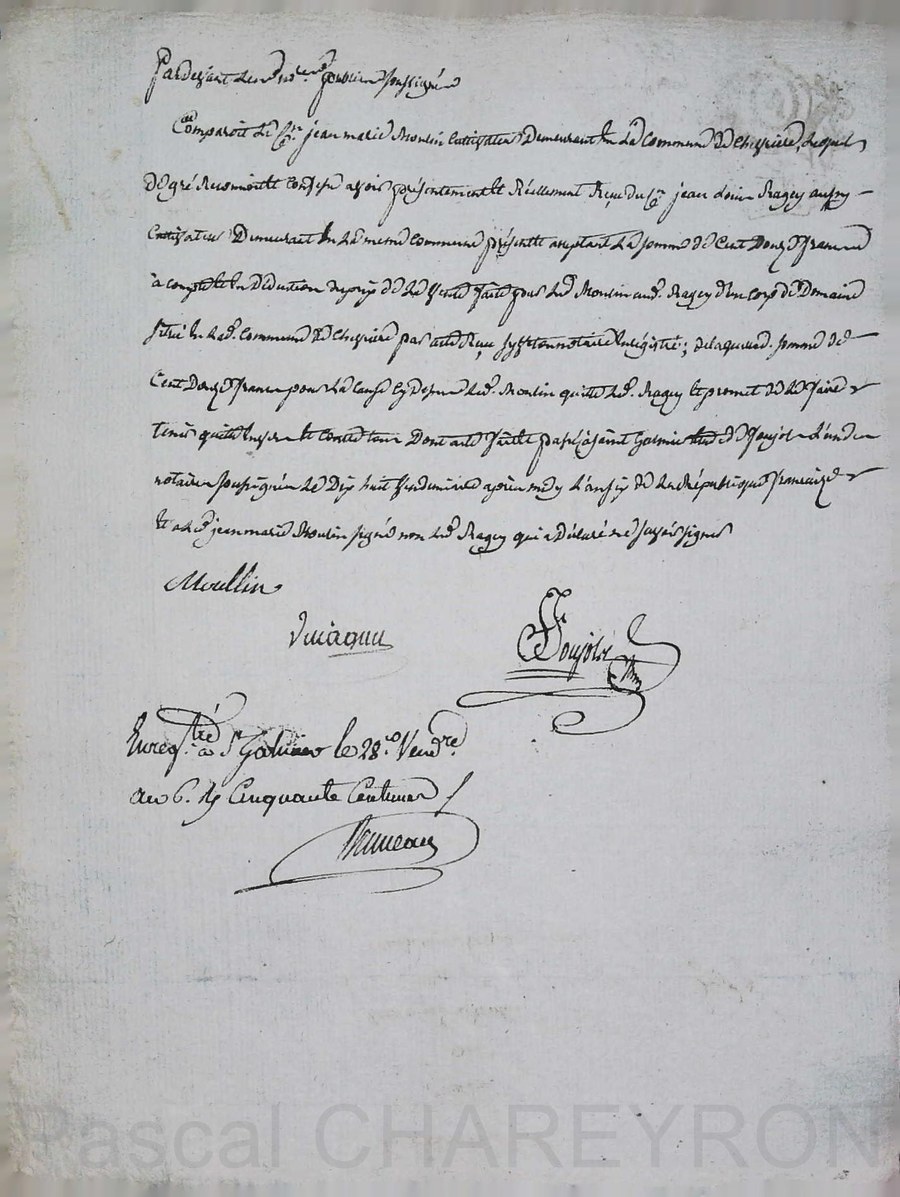 Pardevant Les nres publics soussignés
Comparoit Le Cen jean marie Moulin Cultivateur Demeurant En La Commune De Chevrieres, Lequel
De gré Reconnoit et Confesse avoir présentement et Réellement Reçu du Cen jean Louis Ragey aussy
Cultivateur Demeurant En La meme Commune présent et aceptant La somme de Cent Douze francs
à compte et En Déduction du prix de La Vente faite par Led. Moulin aud. Ragey d'un Corps De Domaine
situé En Lad. Commune De Chevrieres par acte Reçu notaire Enregistré; de laquelle d. somme de
Cent Douze francs pour La Cause Cy Dessus Led. Moulin quitte Led. Ragey et promet De Le faire
tenir quitte Envers et Contre tous Dont acte fait et passé à saint Galmier De L'un des
notaires soussignés Le Dix huit Vendemiaire après midy L'an six de La République francaise
Et a Led. jean marie Moulin signé non Led. Ragey qui a Déclaré ne savoir signer
Moullin
Enregtré à St Galmier le 28.e Vendre
an 6. Rç Cinquante Centimes